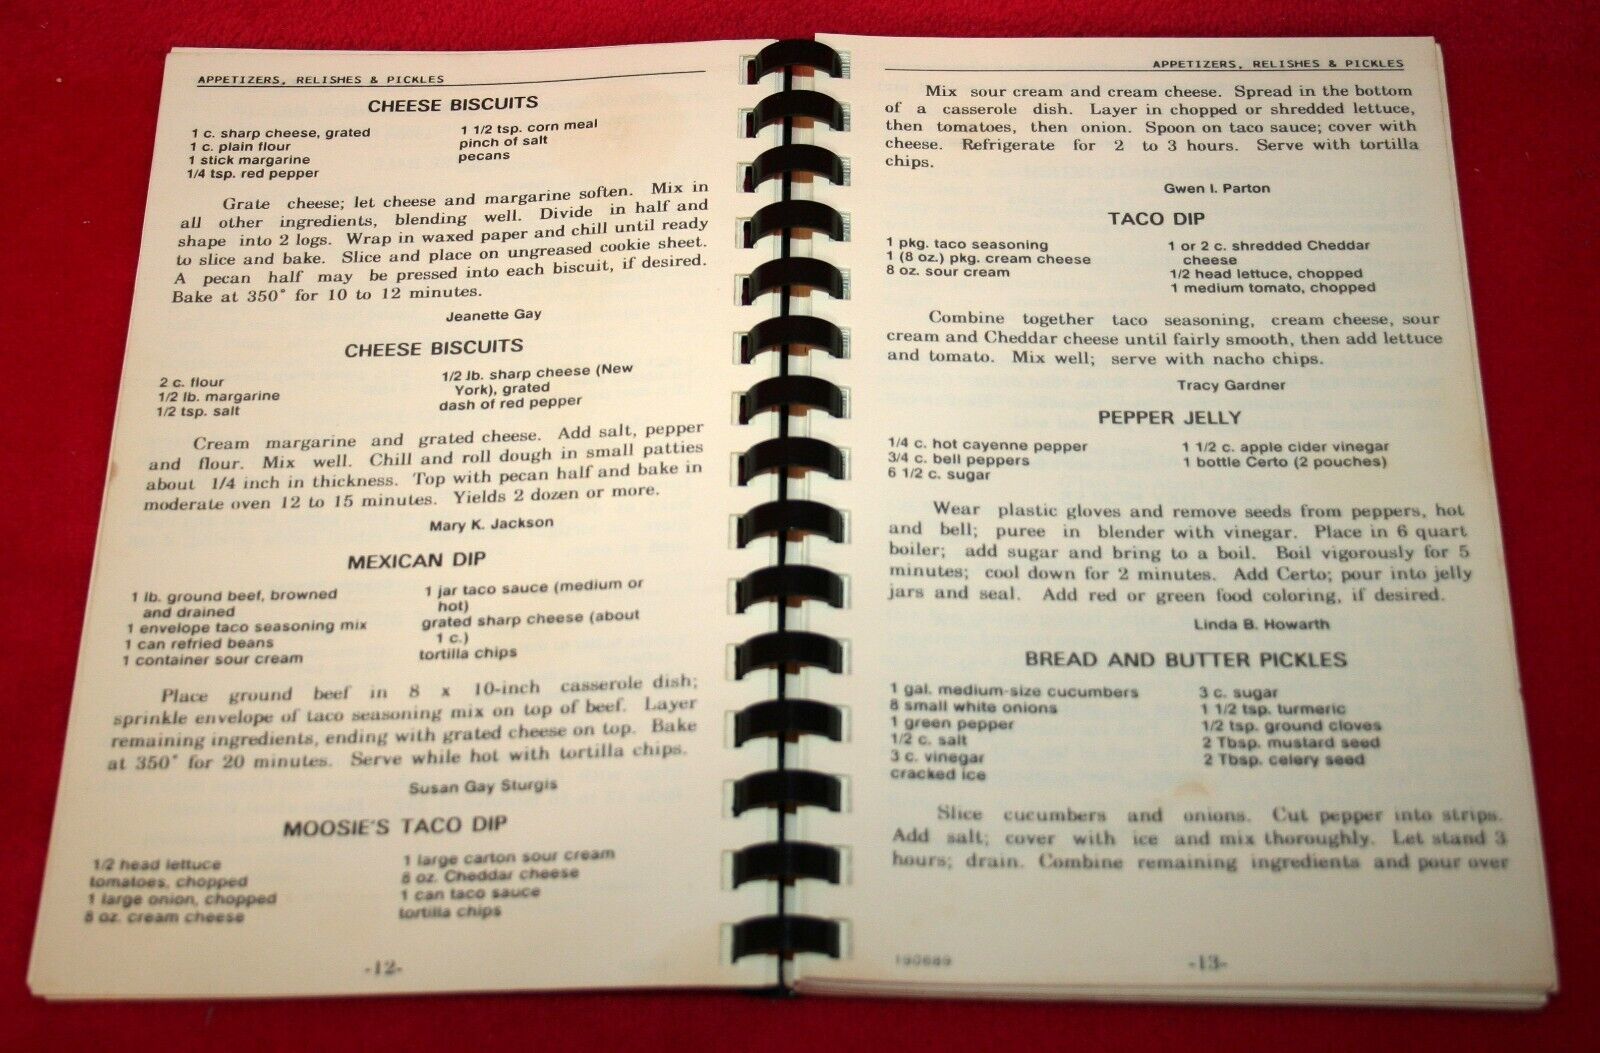 APPETIZERS, RELISHES & PICKLES
CHEESE BISCUITS
1 c. sharp cheese, grated
1 c. plain flour
1 stick margarine
1/4 tsp. red pepper
1 1/2 tsp. corn meal
pinch of salt
pecans
Grate cheese; let cheese and margarine soften. Mix in
all other ingredients, blending well. Divide in half and
shape into 2 logs. Wrap in waxed paper and chill until ready
to slice and bake. Slice and place on ungreased cookie sheet.
A pecan half may be pressed into each biscuit, if desired.
Bake at 350° for 10 to 12 minutes.
Jeanette Gay
CHEESE BISCUITS
2 c. flour
1/2 lb. margarine
1/2 tsp. salt
1/2 lb. sharp cheese (New
York), grated
dash of red pepper
Cream margarine and grated cheese. Add salt, pepper
and flour. Mix well. Chill and roll dough in small patties
about 1/4 inch in thickness. Top with pecan half and bake in
moderate oven 12 to 15 minutes. Yields 2 dozen or more.
Mary K. Jackson
MEXICAN DIP
1 lb. ground beef, browned
and drained
1 envelope taco seasoning mix
1 can refried beans
1 container sour cream
1 jar taco sauce (medium or
hot)
grated sharp cheese (about
1 c.)
tortilla chips
Place ground beef in 8 x 10-inch casserole dish;
sprinkle envelope of taco seasoning mix on top of beef. Layer
remaining ingredients, ending with grated cheese on top. Bake
at 350° for 20 minutes. Serve while hot with tortilla chips.
Susan Gay Sturgis
MOOSIE'S TACO DIP
1/2 head lettuce
tomatoes, chopped
1 large onion, chopped
8 oz. cream cheese
1 large carton sour cream
8 oz. Cheddar cheese
1 can taco sauce
tortilla chips
-12-
APPETIZERS, RELISHES & PICKLES
Mix sour cream and cream cheese. Spread in the bottom
of a casserole dish. Layer in chopped or shredded lettuce,
then tomatoes, then onion. Spoon on taco sauce; cover with
cheese. Refrigerate for 2 to 3 hours. Serve with tortilla
chips.
Gwen I. Parton
TACO DIP
1 pkg. taco seasoning
1 (8 oz.) pkg. cream cheese
8 oz. sour cream
1 or 2 c. shredded Cheddar
cheese
1/2 head lettuce, chopped
1 medium tomato, chopped
Combine together taco seasoning, cream cheese, sour
cream and Cheddar cheese until fairly smooth, then add lettuce
and tomato. Mix well; serve with nacho chips.
Tracy Gardner
PEPPER JELLY
1/4 c. hot cayenne pepper
3/4 c. bell peppers
6 1/2 c. sugar
1 1/2 c. apple cider vinegar
1 bottle Certo (2 pouches)
Wear plastic gloves and remove seeds from peppers, hot
and bell; puree in blender with vinegar. Place in 6 quart
boiler; add sugar and bring to a boil. Boil vigorously for 5
minutes; cool down for 2 minutes. Add Certo; pour into jelly
jars and seal. Add red or green food coloring, if desired.
Linda B. Howarth
BREAD AND BUTTER PICKLES
1 gal. medium-size cucumbers
8 small white onions
1 green pepper
1/2 c. salt
3 c. vinegar
cracked ice
3 c. sugar
1 1/2 tsp. turmeric
1/2 tsp. ground cloves
2 Tbsp. mustard seed
2 Tbsp. celery seed
Slice cucumbers and onions. Cut pepper into strips.
Add salt; cover with ice and mix thoroughly. Let stand 3
hours; drain. Combine remaining ingredients and pour over
190689
-13-